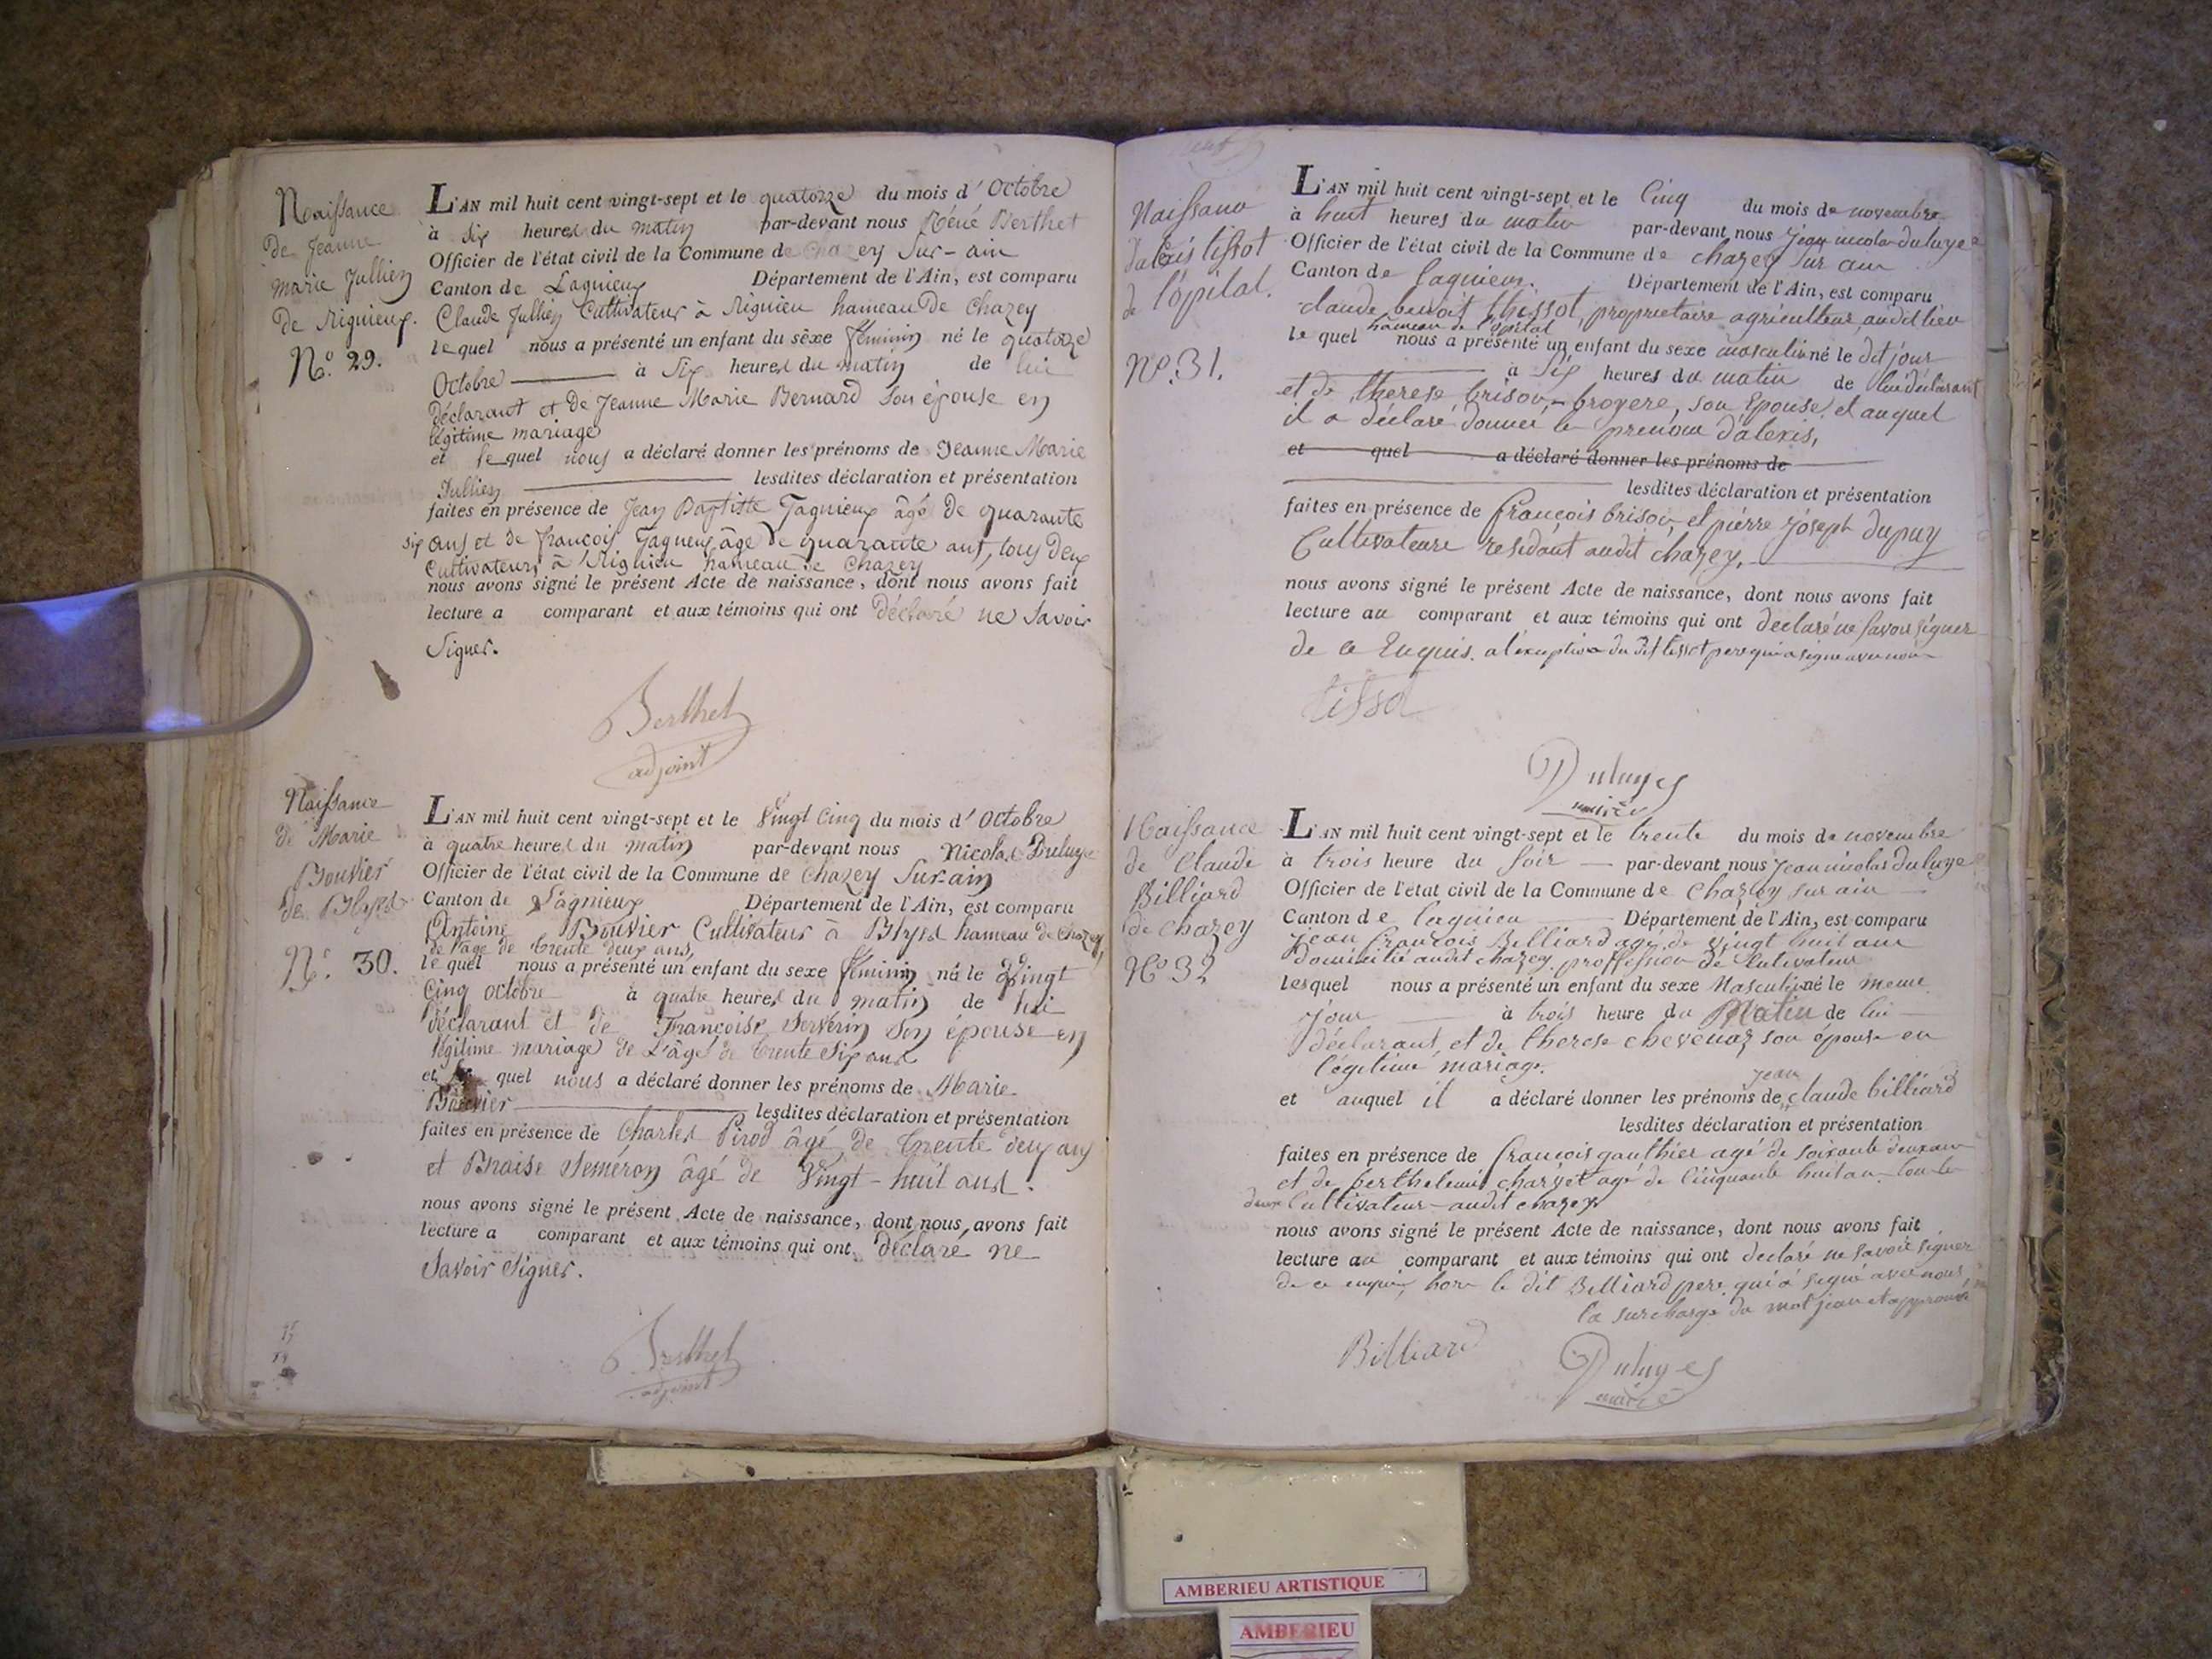 Naissance
de Jeanne
Marie Jullien
de Rignieux.
N.º 29.
L'AN mil huit cent vingt-sept et le quatorze du mois d'Octobre
à Six heures du matin par-devant nous Réné Berthet
Officier de l'état civil de la Commune de Chazey Sur-ain
Canton de Lagnieux Département de l'Ain, est comparu
Claude Jullien Cultivateur à Rignieu hameau De Chazey
lequel nous a présenté un enfant du sèxe féminin né le quatorze
Octobre à Six heures du matin de lui
déclarant et De Jeanne Marie Bernard Son épouse en
légitime mariage
et lequel nous a déclaré donner les prénoms de Jeanne Marie
Jullien lesdites déclaration et présentation
faites en présence de Jean Baptiste Gagnieux âgé De quarante
six ans et de françois Gagneux âgé De quarante ans, tous deux
Cultivateurs à Rignieu hameau de Chazey
nous avons signé le présent Acte de naissance, dont nous avons fait
lecture a comparant et aux témoins qui ont déclaré ne Savoir
Signer.
Berthet
adjoint
Naissance
de Marie
Bouvier
de Blyes
N.º 30.
L'AN mil huit cent vingt-sept et le Vingt Cinq du mois d'Octobre
à quatre heures du matin par-devant nous Nicolas Duluye
Officier de l'état civil de la Commune de Chazey Sur-ain
Canton de Lagnieux Département de l'Ain, est comparu
Antoine Bouvier Cultivateur à Blyes hameau de Chazey,
de l'age de trente deux ans,
lequel nous a présenté un enfant du sexe féminin né le Vingt
Cinq octobre à quatre heures du matin de lui
déclarant et de Françoise Serverin Son épouse en
légitime mariage de L'âgé de trente Six ans
et quel nous a déclaré donner les prénoms de Marie
Bouvier lesdites déclaration et présentation
faites en présence de Charles Pirod âgé de trente deux ans
et Blaise Seméron âgé de Vingt-huit ans.
nous avons signé le présent Acte de naissance, dont nous avons fait
lecture a comparant et aux témoins qui ont déclaré ne
Savoir Signer.
Berthet
adjoint
Naissance
d'alexis tissot
de l'opital.
Nº. 31.
L'AN mil huit cent vingt-sept et le Cinq du mois de novembre
à huit heures du matin par-devant nous Jean nicolas duluye
Officier de l'état civil de la Commune de chazey sur ain
Canton de lagnieu. Département de l'Ain, est comparu
claude benoit thissot, propriétaire agriculteur, audit lieu
hameau de l'opital
le quel nous a présenté un enfant du sexe masculin né le dit jour
à Six heures du matin de lui déclarant
et de therese brison, broyere, son Epouse, et auquel
il a déclaré donner le prenom d'alexis,
et quel a déclaré donner les prénoms de
lesdites déclaration et présentation
faites en présence de françois brison, et pierre joseph dupuy
Cultivateurs residant audit chazey.
nous avons signé le présent Acte de naissance, dont nous avons fait
lecture au comparant et aux témoins qui ont declaré ne Savoir signer
de ce Enquis. a l'exception du dit tissot pere qui a signé avec nous
tissot
Duluyes
maire
Naissance
de Claude
Billiard
de chazey
Nº 32
L'AN mil huit cent vingt-sept et le trente du mois de novembre
à trois heure du soir par-devant nous Jean nicolas duluye
Officier de l'état civil de la Commune de Chazey sur ain
Canton de lagnieu Département de l'Ain, est comparu
jean françois Billiard agé de vingt huit ans
domicilié audit chazey proffession de Cultivateur
lesquel nous a présenté un enfant du sexe Masculin né le meme
jour à trois heure du Matin de lui
déclarant, et de therese chevenaz son épouse en
légitime mariage.
jean
et auquel il a déclaré donner les prénoms de claude billiard
lesdites déclaration et présentation
faites en présence de françois gauthier agé de soixante deux ans
et de berthelemi charvet agé de Cinquante huit ans tous les
deux Cultivateur audit chazey
nous avons signé le présent Acte de naissance, dont nous avons fait
lecture au comparant et aux témoins qui ont declaré ne savoir signer
de ce enquis, hors le dit Billiard pere qui a signé avec nous,
la surcharge du mot jean et approuvé
Billiard
Duluyes
maire
AMBERIEU ARTISTIQUE
AMBERIEU